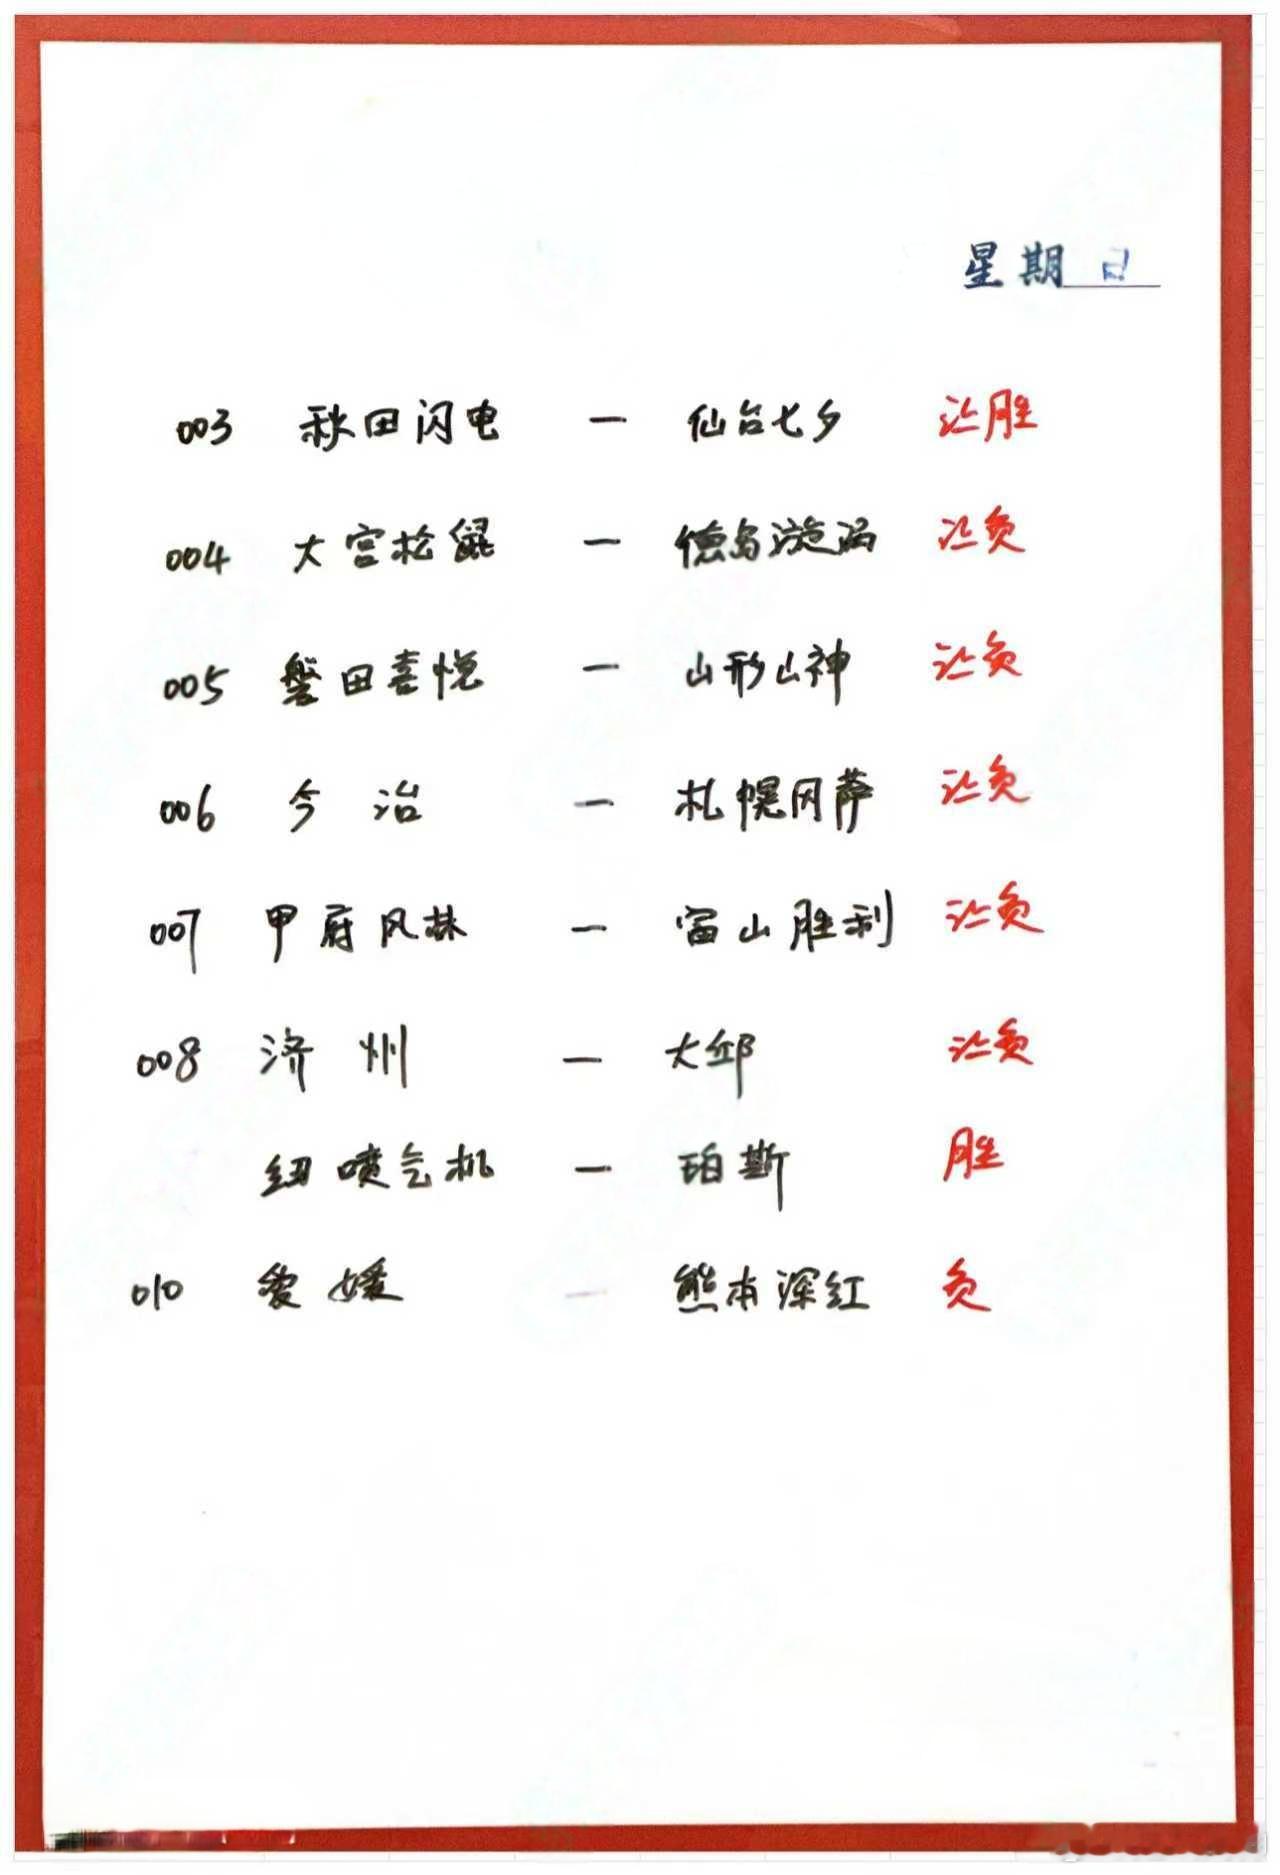 星期日
003 秋田闪电 — 仙台七夕 让胜
004 大宫松鼠 — 德岛漩涡 让负
005 磐田喜悦 — 山形山神 让负
006 今治 — 札幌冈萨 让负
007 甲府风林 — 富山胜利 让负
008 济州 — 大邱 让负
纽喷气机 — 珀斯 胜
010 爱媛 — 熊本深红 负